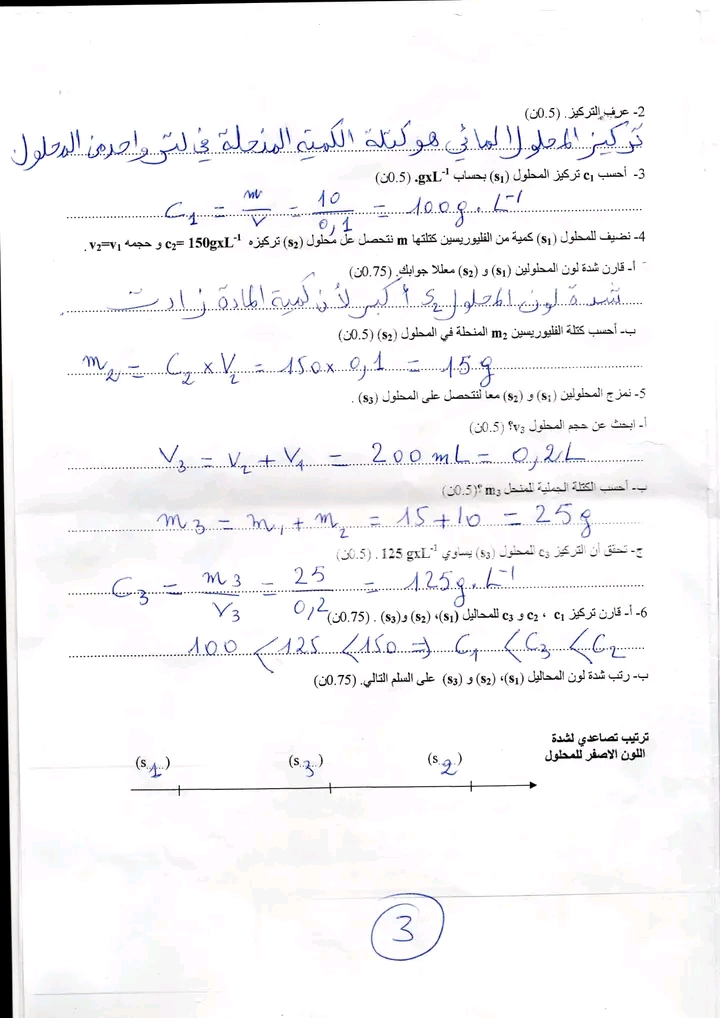 2- عرف التركيز. (0.5ن)
تركيز المحلول المائي هو كتلة الكمية المنحلة في لتر واحد من المحلول
3- أحسب c₁ تركيز المحلول (s₁) بحساب gxL⁻¹. (0.5ن)
C₁ = m/V = 10/0,1 = 100g.L⁻¹
4- نضيف للمحلول (s₁) كمية من الفليوريسين كتلتها m نتحصل عل محلول (s₂) تركيزه c₂= 150gxL⁻¹ و حجمه v₂=v₁ .
أ- قارن شدة لون المحلولين (s₁) و (s₂) معللا جوابك. (0.75ن)
شدة لون المحلول s₂ أكبر لأن كمية المادة زادت
ب- أحسب كتلة الفليوريسين m₂ المنحلة في المحلول (s₂) (0.5ن)
m₂ = C₂ x V₂ = 150x 0,1 = 15g
5- نمزج المحلولين (s₁) و (s₂) معا لنتحصل على المحلول (s₃) .
أ- ابحث عن حجم المحلول v₃؟ (0.5ن)
V₃ = V₂ + V₁ = 200 mL = 0,2L
ب- أحسب الكتلة الجملية للمنحل m₃ ؟(0.5ن)
m₃ = m₁ + m₂ = 15+10 = 25g
ج- تحقق أن التركيز c₃ للمحلول (s₃) يساوي 125 gxL⁻¹ . (0.5ن)
C₃ = m₃/V₃ = 25/0,2 = 125g.L⁻¹
6- أ- قارن تركيز c₁ ، c₂ و c₃ للمحاليل (s₁)، (s₂) و(s₃) . (0.75ن)
100 < 125 < 150 => C₁ < C₃ < C₂
ب- رتب شدة لون المحاليل (s₁)، (s₂) و (s₃) على السلم التالي. (0.75ن)
ترتيب تصاعدي لشدة
اللون الاصفر للمحلول
(s..1..) (s..3..) (s..2..)
3